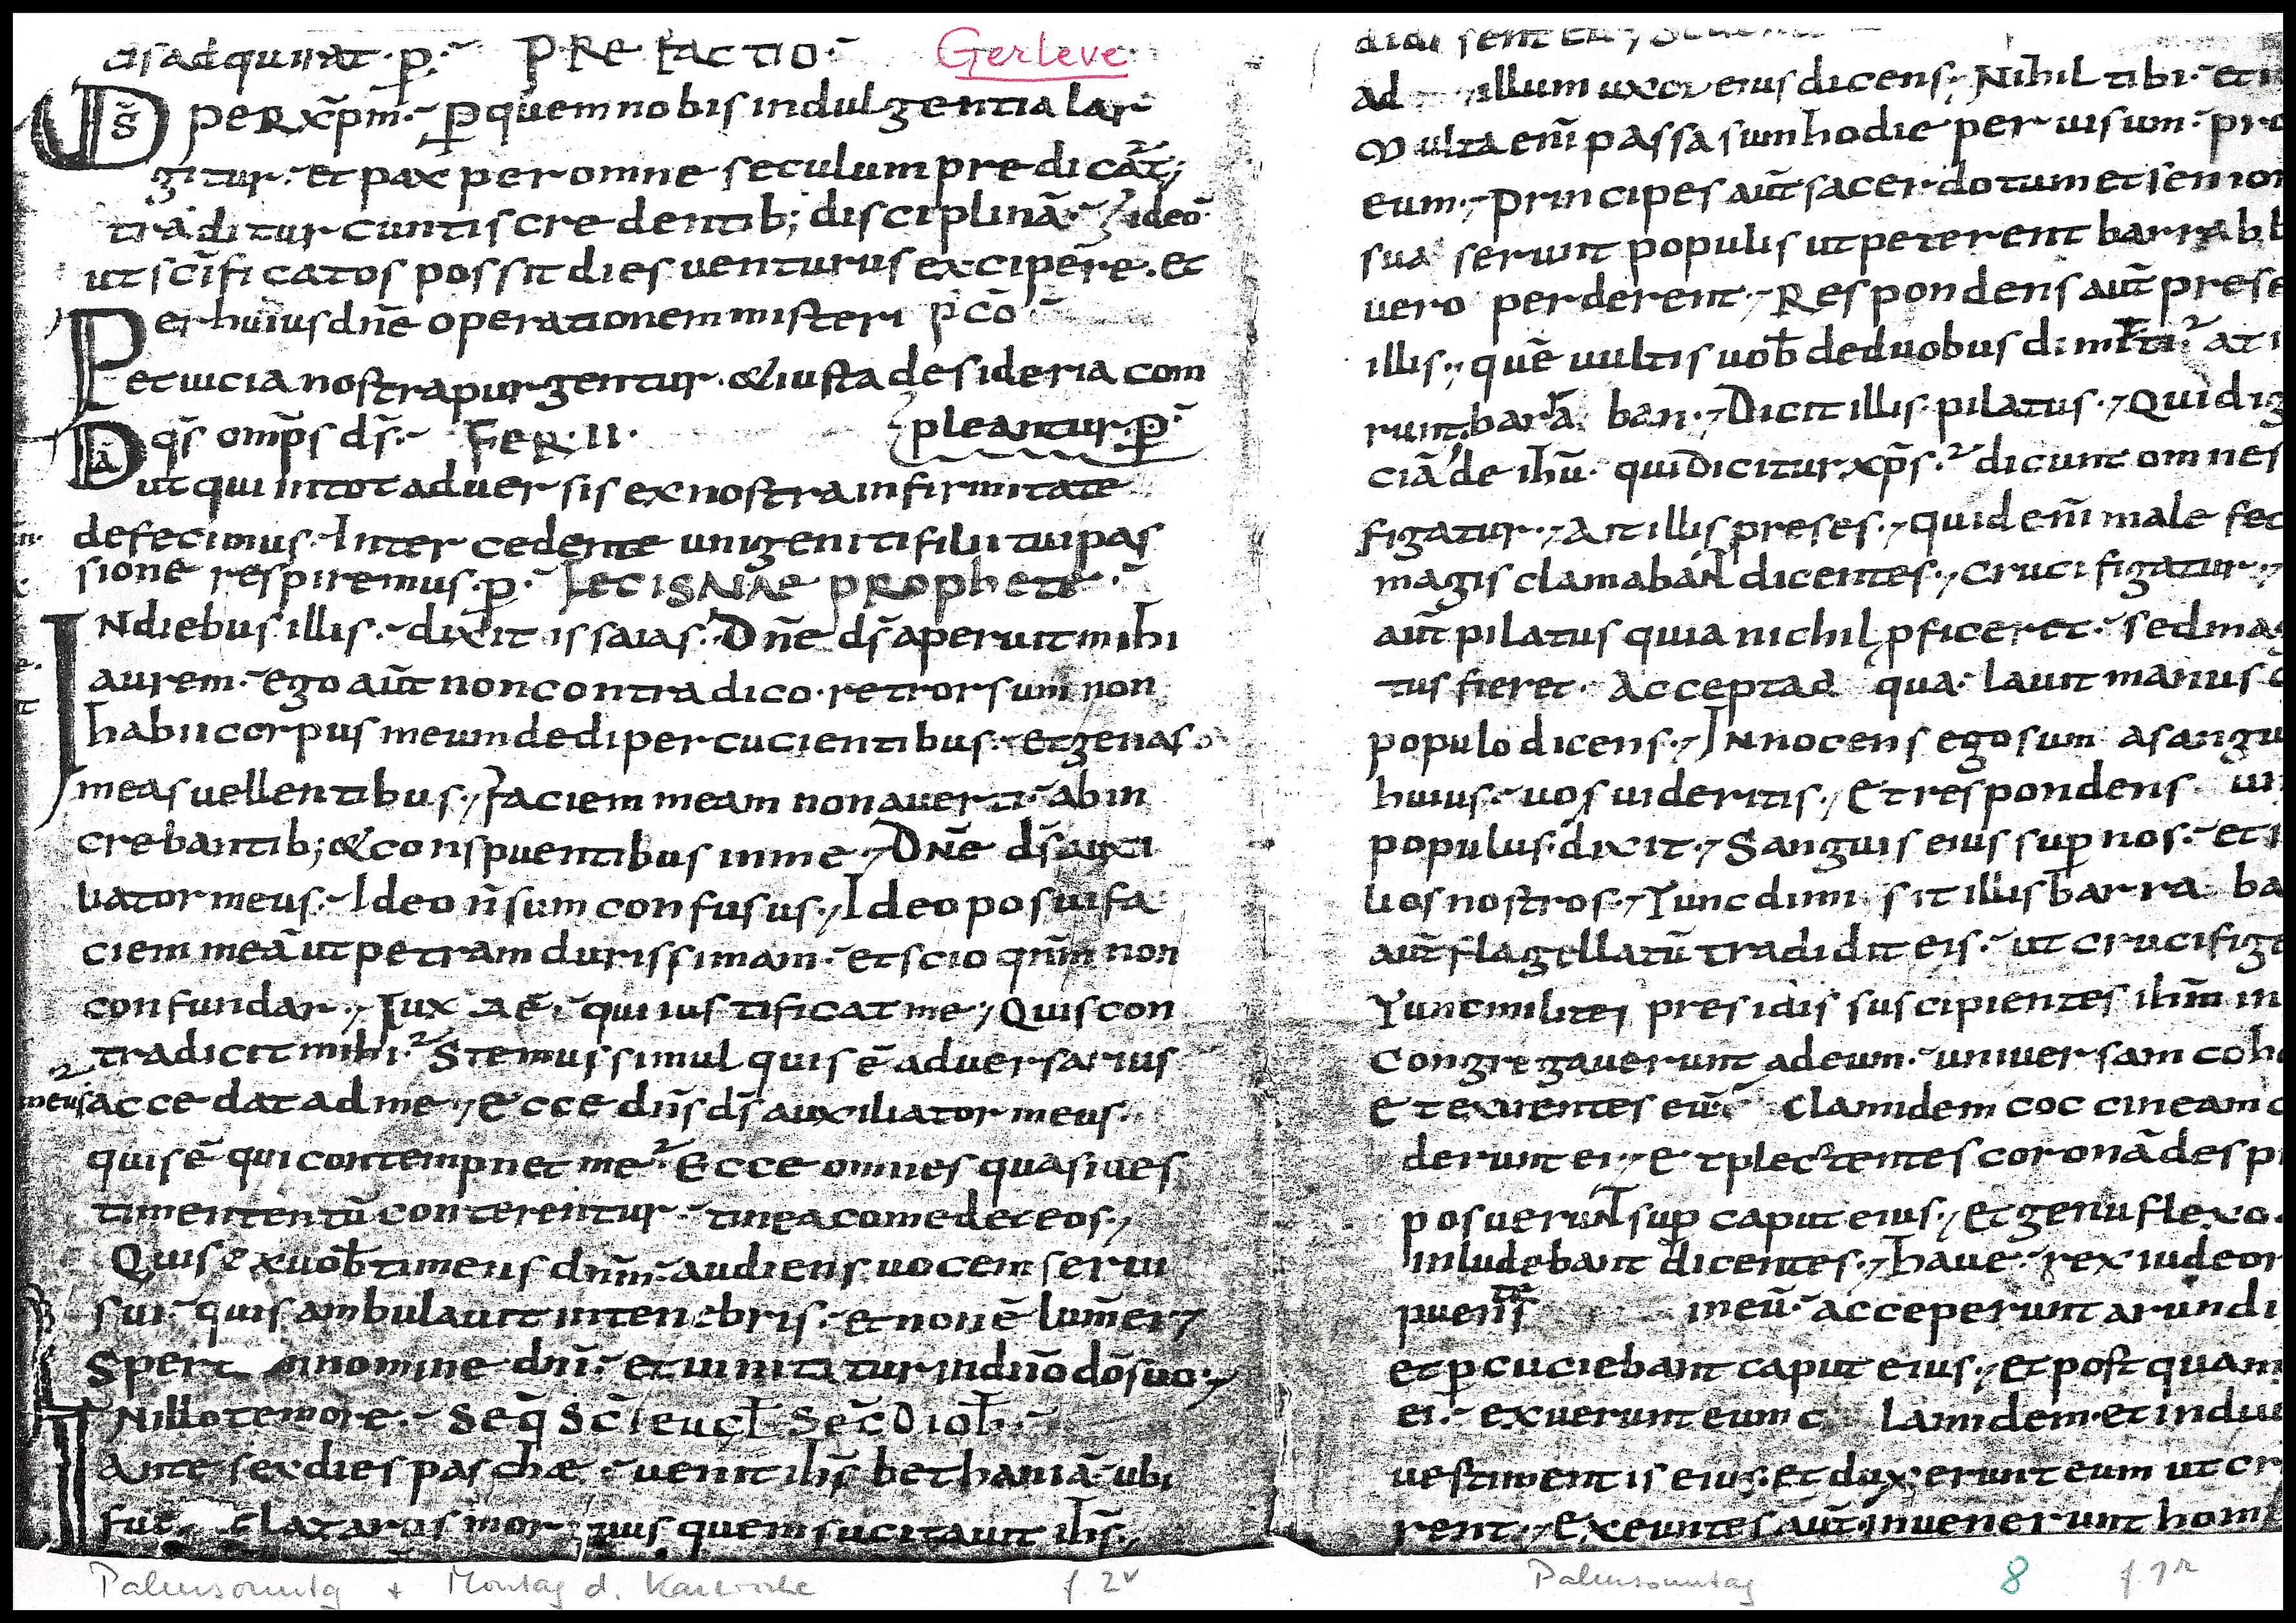 cisadquirat·p̱·~ PREFACTIO·~ Gerleve
Ds̄ PERXp̄m·~ ꝑquem nobis indulgentia lar
gitur·~ et pax per omne seculum predicat̄;
traditur cuntis credentib; disciplinā·~ ideo·
ut sc̄ificatos possit dies venturus excipere·et
Per huius dn̄e operationem misteri p̄cō·~
et uicia nostra purgentur·& iusta desideria com
pleantur·p̱·~
Dā qs̄ om̄ps ds̄·~ FER·II·
ut qui in tot adversis ex nostra infirmitate
defecimus·~ Intercedente unigeniti filii tui pas
sione respiremus·p̱·~ LEC ISAIAE PROPhete·~
INdiebus illis·~ dixit issaias·~ Dn̄e ds̄ aperuit mihi
aurem·~ ego aūt non contradico·retrorsum non
habii corpus meum dedi percucientibus·~ et genas
meas vellentibus·, faciem meam non averti·~ ab in
crebantib; & conspuentibus in me·, Dn̄e ds̄ auxi
liator meus·~ Ideo n̄ sum confusus·, Ideo posui fa
ciem meā ut petram durissimam·~ et scio qnm̄ non
confundar·, Iux ae· qui iustificat me·, Quis con
tradicit mihi·² Stemus simul quis ē adversarius
meus accedat ad me·, Ecce dn̄s ds̄ auxiliator meus·
quis ē qui contempnet me·² Ecce omnes quasi ves
timententū conterentur·~ tinea comedet eos·,
Quis ex vob̄ timens dnm̄·~ audiens vocem servi
sui·~ quis ambulavit in tenebris·~ et non ē lumēei·,
Spert in nomine dn̄i·~ et innititur in dn̄o dō suo·,
INillo tempore·~ Seq̄ Sc̄i eucl̄ Sec̄D ioh̄·~
Ante sex dies paschæ·~ venit ih̄s bethaniā·~ ubi
fue latarus mortuus quem sucitavit ih̄s·,
Palmsonntag + Montag d. Karwoche f. 2v
ad illum uxor eius dicens·, Nihil tibi·~ et i
Multa enī passa sum hodie per visum·~ pro
eum·, Principes aūt sacerdotum et senior
suaserunt populis ut peterent barrabb
vero perderent·, Respondens aūt prese
illis·, quē vultis vob̄ de duobus dimitti·² at i
runt·barra ban·, Dicit illis pilatus·, Quid ig
ciā de ih̄u· qui dicitur xp̄s·² dicunt omnes
figatur·, Ait illis preses·, quid enī male fec
magis clamabaNt dicentes·, crucifigatur·,
aūt pilatus quia nichil pficeret·~ sed mag
tus fieret· Accepta a qua· lavit manus c
populo dicens·, INnocens ego sum a sangu
huius·~ vos videritis·, Et respondens un
populus·dixit·, Sanguis eius sup̱ nos·~ et i
lios nostros·, Tunc dimi sit illis barra ba
aūt flagellatū tradidit eis·~ ut crucifige
Tunc milites presidis suscipientes ih̄m in
Congregaverunt ad eum·~ universam coho
Et exuentes eū· clamidem coccineam c
derunt ei·, Et plectentes coronā de spi
posueruNt sup̱ caput eius·, Et genu flexo·
inludebant dicentes·, have·~ rex iudeor
puents in eū·~ acceperunt arundi
et p̱cuciebant caput eius·, Et postquam
ei·~ exuerunt eum c lamidem·et indue
vestimentis eius·et duxerunt eum ut cr
rent·, Exeuntes aūt·invenerunt homi
Palmsonntag 8 f. 7r